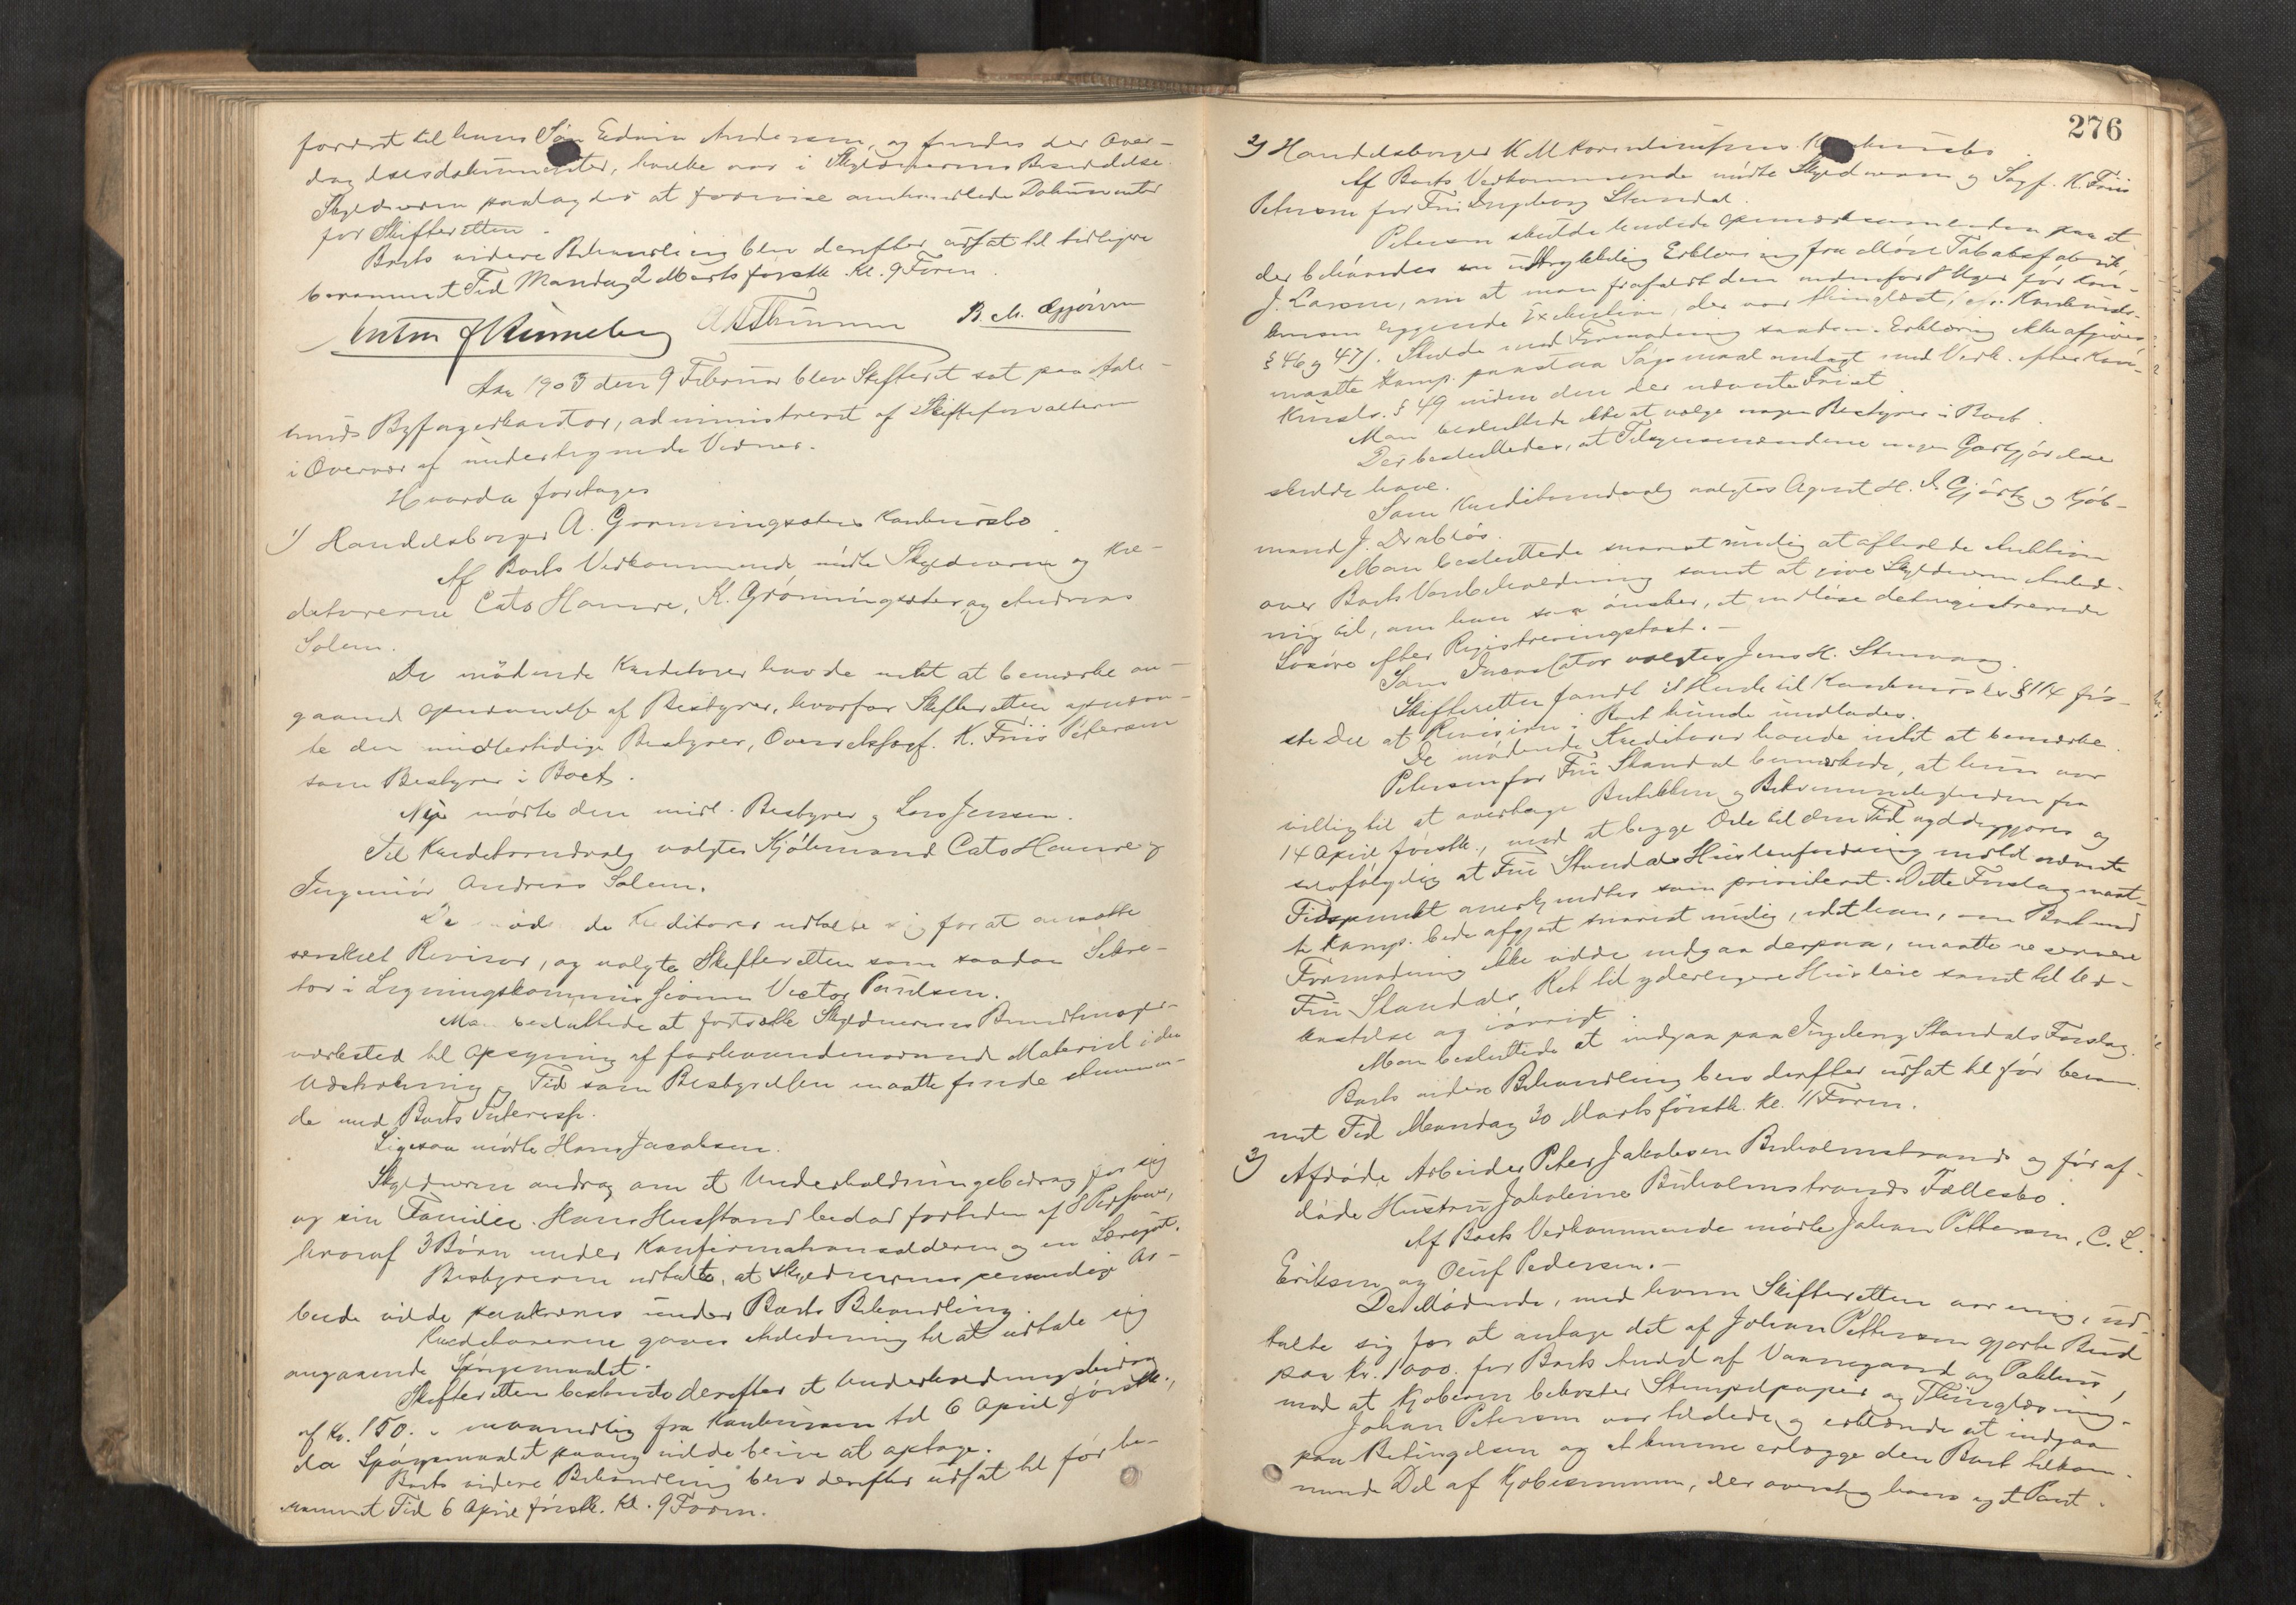 foræret til hans Søn Edvin Andersen, og fandtes der Over-
dragelsesdokumenter, hvilke var i Skyldnerens Besiddelse.
Skyldneren paalagdes at forevise omhandlede Dokumenter
for Skifteretten.
Boets videre Behandling blev derefter udsat til tidligere
berammet Tid Mandag 2 Marts førstk. Kl. 9 Form.
Aar 1903 den 9 Februar blev Skifteret sat paa Aale-
sunds Byfogedkontor, administreret af Skifteforvalteren
i Overvær af undertegnede Vidner.
Hvorda foretages
1) Handelsborger A. Grønningsæters Konkursbo.
Af Boets Vedkommende mødte Skyldneren og Kre-
ditorerne Cato Hamre, K. Grønningsæter og Andreas
Solem.
De mødende Kreditorer havde intet at bemærke an-
gaaende Opnævnelse af Bestyrer, hvorfor Skifteretten opnævn-
te den midlertidige Bestyrer, Overretssagf. K. Friis Petersen
som Bestyrer i Boet.
mødte den midl. Bestyrer og Lars Jensen.
Til Kreditorudvalg valgtes Kjøbmand Cato Hamre og
Ingeniør Andreas Solem.
De mødende Kreditorer udtalte sig for at ansætte
særskilt Revisor, og valgte Skifteretten som saadan Sekre-
tær i Ligningskommissionen Victor Poulsen.
Man besluttede at fortsætte Skyldnerens
værksted til Opsyning af forhaandenværende Materiel i den
Udstrækning og Tid som Bestyrelsen maatte finde stemmen-
de med Boets Interesse.
Ligesaa mødte Hans Jacobsen.
Skyldneren androg om et Underholdningsbidrag for sig
og sin Familie. Hans Husstand bestod fortiden af 8 Personer,
hvoraf 3 Børn under Konfirmationsalderen og en
Bestyreren udtalte, at Skyldnerens personlige Ar-
beide vilde paakræves under Boets Behandling.
Kreditorerne gaves Anledning til at udtale sig
angaaende Spørgsmaalet.
Skifteretten bestemte derefter et Underholdningsbidrag
af Kr. 150. maanedlig fra Konkursen til 6 April førstk.,
da Spørgsmaalet paany vilde blive at optage.
Boets videre Behandling blev derefter udsat til før be-
rammet Tid 6 April førstk. Kl. 9 Form.
276
2) Handelsborger K M Konkursbo.
Af Boets Vedkommende mødte Skyldneren og Sagf. K. Friis
Petersen for Fru Ingeborg Standal.
Petersen henledede Opmærksomheden paa at
der behøvedes en udtrykkelig Erklæring fra Møre Tobaksfabrik
J. Larsen, om at man frafaldt den indenfor 8 Uger før Kon-
kursen liggende Exekution, der var thinglæst, cfr. Konkurslov.
§ 46 og 47. Skulde mod Formodning saadan Erklæring ikke afgives
maatte Komp. paastaa Søgsmaal anlagt med Verk. efter Kon-
kursl. § 49 inden den der nævnte Frist.
Man besluttede ikke at vælge nogen Bestyrer i Boet.
Det besluttedes, at Tilsynsmændene ingen Godtgjørelse
skulde have.
Som Kreditorudvalg valgtes Agent H. J. Gjørtz og Kjøb-
mand J. Drabløs.
Man besluttede snarest mulig at afholde Auktion
over Boets Varebeholdning samt at give Skyldneren Anled-
ning til, om han saa ønsker, at indløse det registrerede
Løsøre efter Registreringstaxt.
Som Incassator valgtes Jens H. Stenvaag.
Skifteretten fandt i Henhold til Konkurslov § 114 før-
ste Del at Revision i Boet kunde undlades.
De mødende Kreditorer havde intet at bemærke.
Petersen for Fru Standal bemærkede, at hun var
villig til at overtage Butikken og Bekvemmeligheden fra
14 April førstk., mod at begge Dele til den Tid ryddiggjøres og
selvfølgelig at Fru Standals Huslejefordring indtil nævnte
Tidspunkt anerkjendtes som prioriteret. Dette Forslag maat-
te Komp. bede afgjort snarest mulig, idet han, om Boet mod
Formodning ikke vilde indgaa derpaa, maatte reservere
Fru Standals Ret til yderligere Husleie samt til
og iøvrigt.
Man besluttede at indgaa paa Ingeborg Standals Forslag.
Boets videre Behandling blev derefter udsat til før beram-
met Tid Mandag 30 Marts førstk. Kl. 11 Form.
3) Afdøde Arbeider Peter Jakobsen Buholmstrands og før af-
døde Hustru Jakobine Buholmstrands Fællesbo.
Af Boets Vedkommende mødte Johan Pettersen, C. L.
Eriksen og Oluf Pedersen.
De Mødende, med hvem Skifteretten var enig, ud-
talte sig for at antage det af Johan Pettersen gjorte Bud
paa Kr. 1000. for Boets Andel af Vaaningen og Pakhus,
mod at Kjøberen bekoster Stempelpapir og Thinglæsning.
Johan Petersen var tilstede og erklærede at indgaa
paa Betingelsen og at kunne erlægge den Boet tilkom-
mende Del af Kjøbesummen, der oversteg hans eget